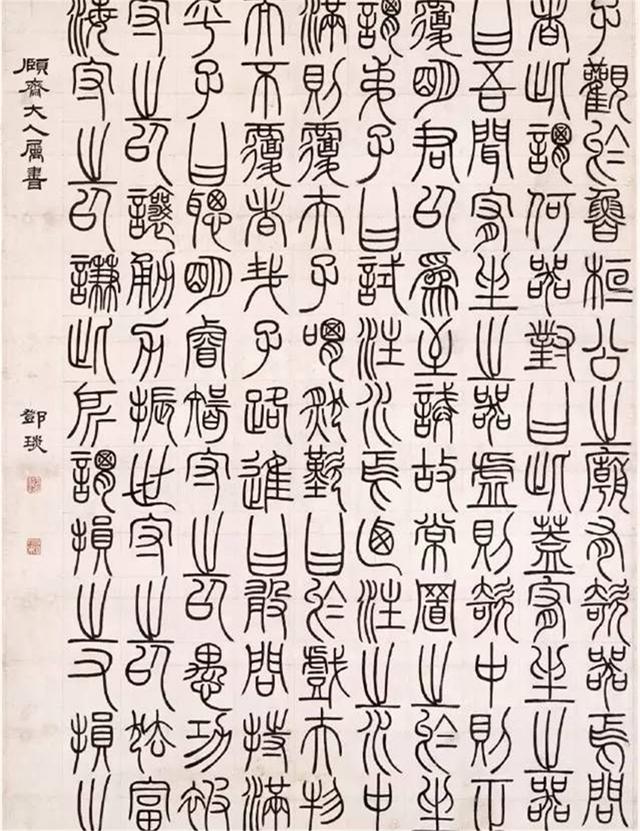 子觀於魯桓公之廟有欹器焉問
者此謂何器對曰此蓋宥坐之器
曰吾聞宥坐之器虛則欹中則正
覆明君以為至誡故常置之於坐
謂弟子曰試注水焉迺注之水中
滿則覆夫子喟然歎曰於戲夫物
而不覆者哉子路進曰敢問持滿
乎子曰聰明睿智守之以愚功被
守之以讓勇力振世守之以怯富
海守之以謙此所謂損之又損之
頤齋大人屬書
鄧琰